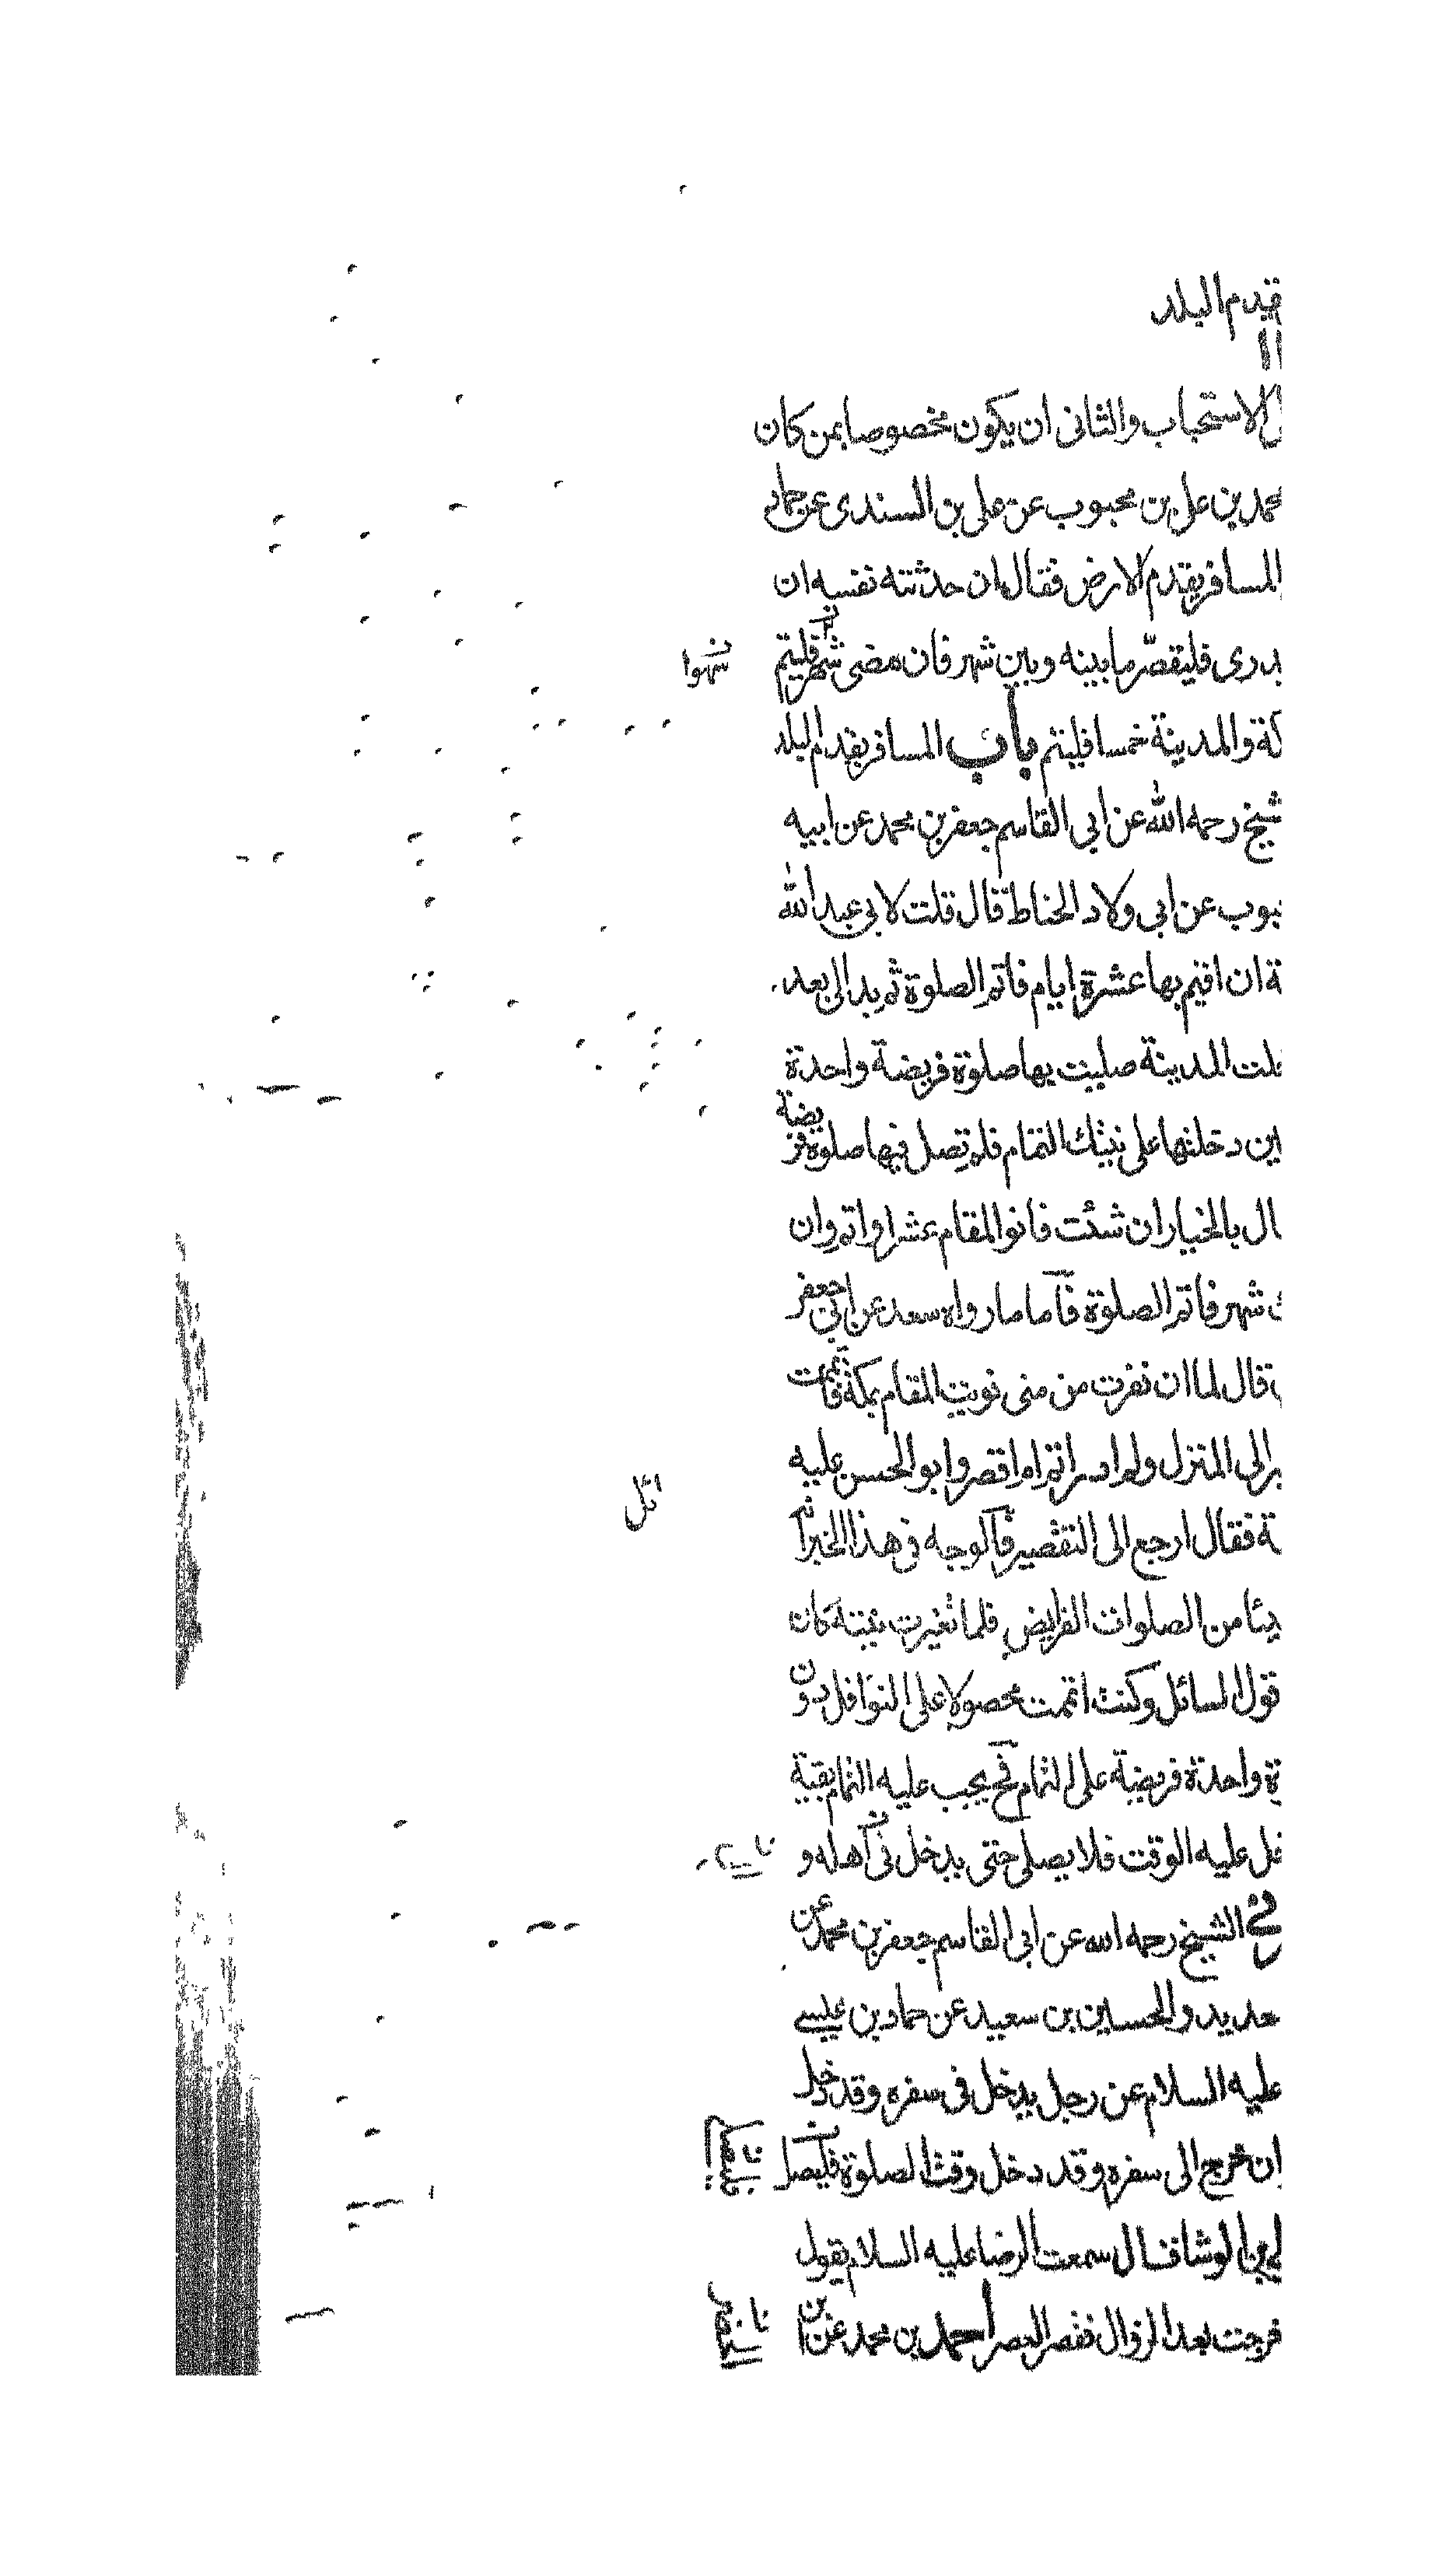 يقدم البلد
الاستحباب والثانى ان يكون مخصوصا بمن كان
محمد بن على بن محبوب عن على بن السندى عن حماد
المسافر يقدم الارض فقال ان حدثته نفسه ان
يدرى فليقصّر ما بينه وبين شهر فان مضى شهر فليتم
شهرا
والمدينة خمسا فليتم باب المسافر يقدم البلد
الشيخ رحمه الله عن ابى القاسم جعفر بن محمد عن ابيه
عن ابى ولاد الحناط قال قلت لابى عبد الله
ان اقيم بها عشرة ايام فاتم الصلوة ثم بدا لى بعد
المدينة صليت بها صلوة فريضة واحدة
حين دخلتها على نيتك التمام فلم تصل فيها صلوة فريضة
بالخيار ان شئت فانو المقام عشرا واتم وان
شهر فاتم الصلوة فاما ما رواه سعد عن ابى جعفر
قال لما ان نفرت من منى نويت المقام بمكة فاتممت
الى المنزل ولم ادر اتم ام اقصر وابو الحسن عليه
فقال ارجع الى التقصير فالوجه فى هذا الخبر انه
من الصلوات الفرايض فلما تغيرت نيته كان
قول السائل وكنت اتممت محمولا على النوافل دون
واحدة فريضة على التمام فح يجب عليه التمام بقية
عليه الوقت فلا يصلى حتى يدخل فى اهله و
الشيخ رحمه الله عن ابى القاسم جعفر بن محمد عن
حديد والحسين بن سعيد عن حماد بن عيسى
عليه السلام عن رجل يدخل فى سفره وقد دخل
ان خرج الى سفره وقد دخل وقت الصلوة فليصل
الوشا قال سمعت الرضا عليه السلام يقول
خرجت بعد الزوال فقصر العصر احمد بن محمد عن ابن